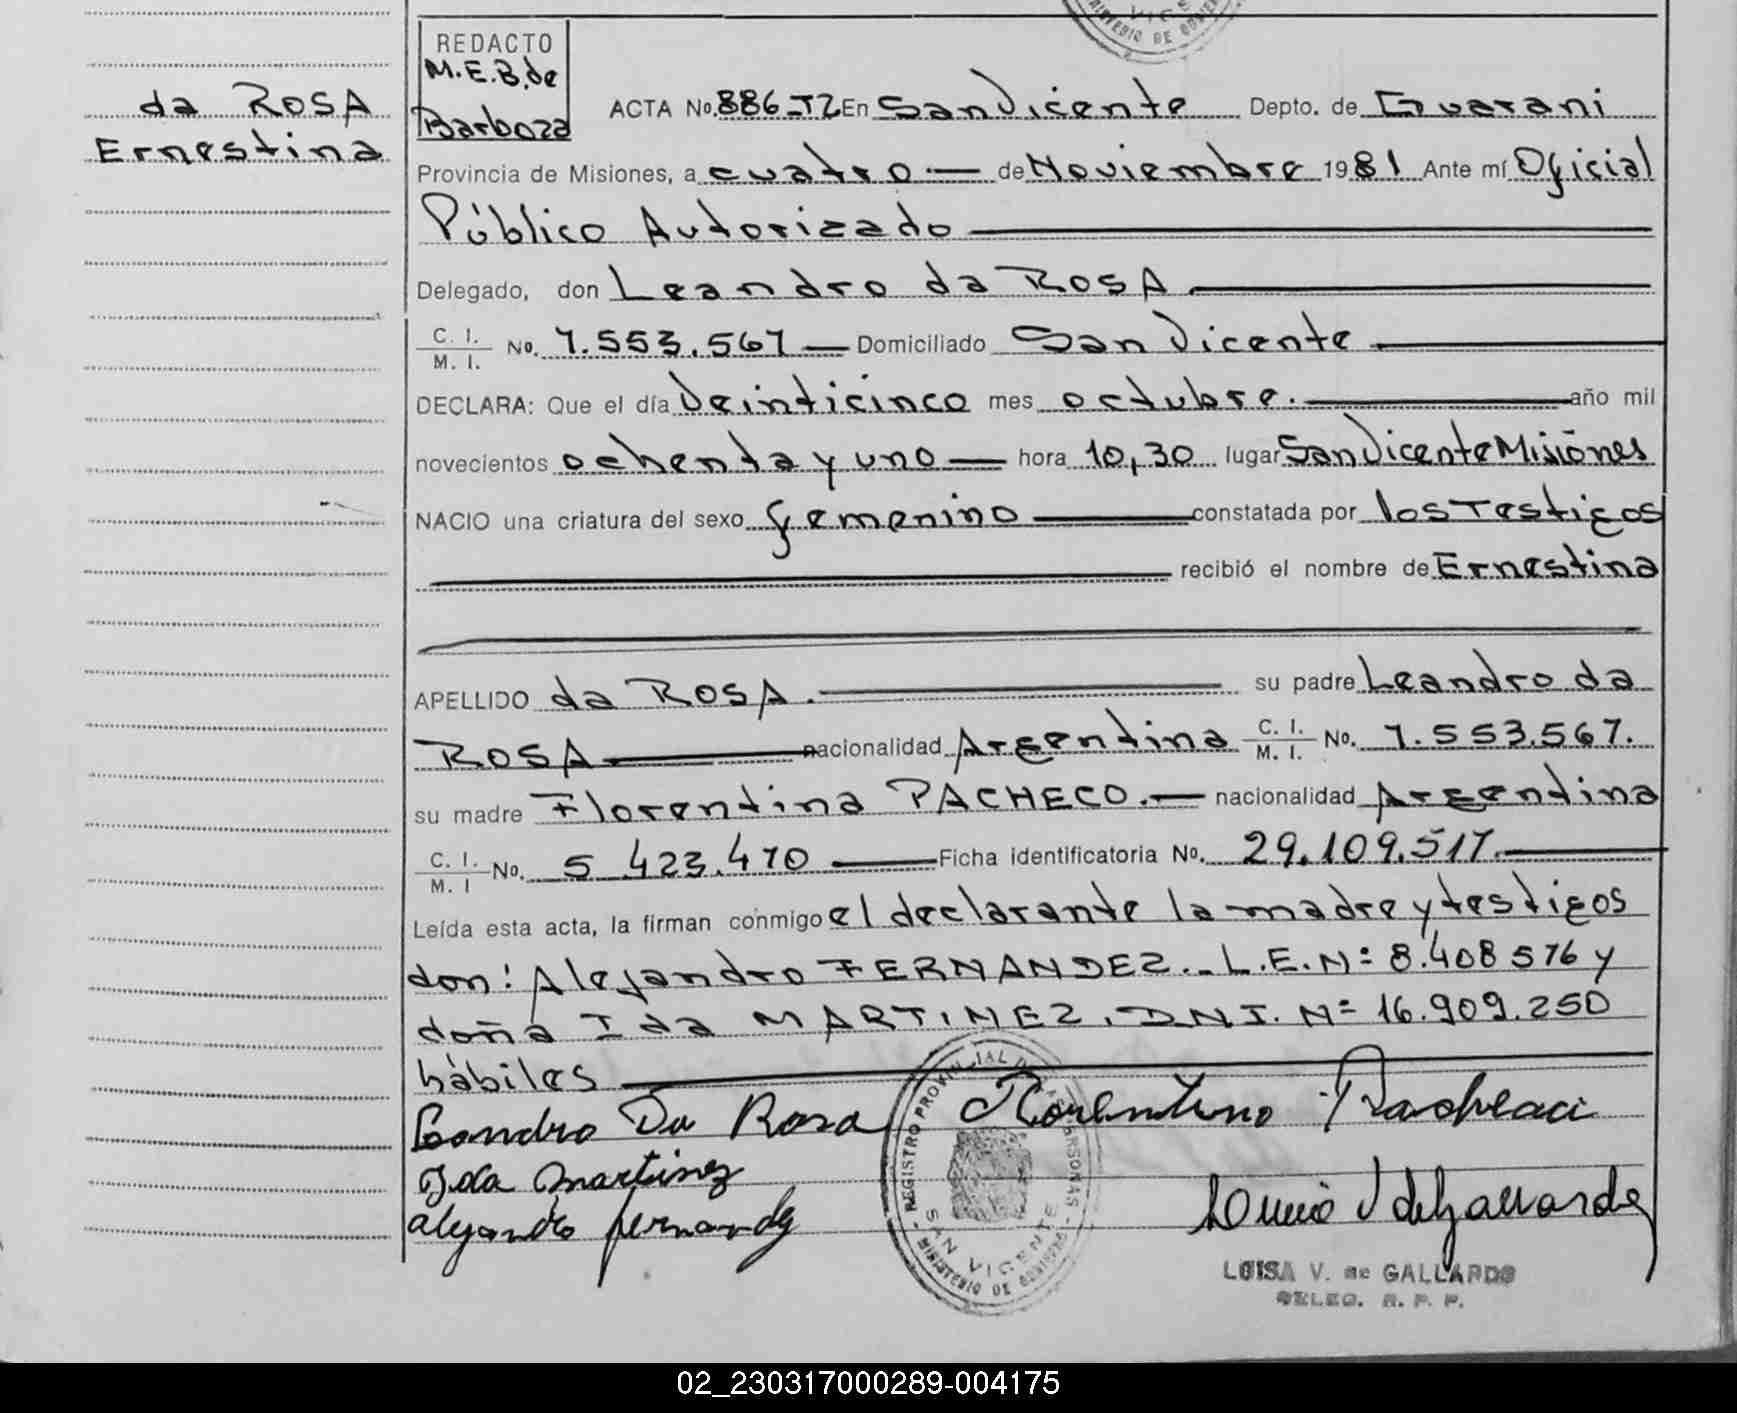 VICE
MINISTERIO DE GOBIERNO
REDACTO
M.E.B. de
Barboza
da ROSA
Ernestina
ACTA No. 886-T2 En San Vicente Depto. de Guarani
Provincia de Misiones, a cuatro.— de Noviembre 1981 Ante mí Oficial
Público Autorizado
Delegado, don Leandro da ROSA
C. I. / M. I. No. 7.553.567 — Domiciliado San Vicente
DECLARA: Que el día Veinticinco mes octubre. año mil
novecientos ochenta y uno — hora 10,30 lugar San Vicente Misiones
NACIO una criatura del sexo femenino constatada por los Testigos
recibió el nombre de Ernestina
APELLIDO da ROSA. su padre Leandro da
ROSA nacionalidad Argentina C. I. / M. I. No. 7.553.567.
su madre Florentina PACHECO.— nacionalidad Argentina
C. I. / M. I No. 5 423.470 Ficha identificatoria No. 29.109.517.
Leída esta acta, la firman conmigo el declarante la madre y testigos
don: Alejandro FERNANDEZ.- L.E.N= 8.408 576 y
doña Ida MARTINEZ. D.N.I. N= 16.909.250
hábiles
Leandro Da Rosa Florentino
Ida Martinez
alejandro fernandez
REGISTRO PROVINCIAL DE LAS PERSONAS
SAN VICENTE
MINISTERIO DE GOBIERNO
LUISA V. de GALLARDO
DELEG. R. P. P.
02_230317000289-004175